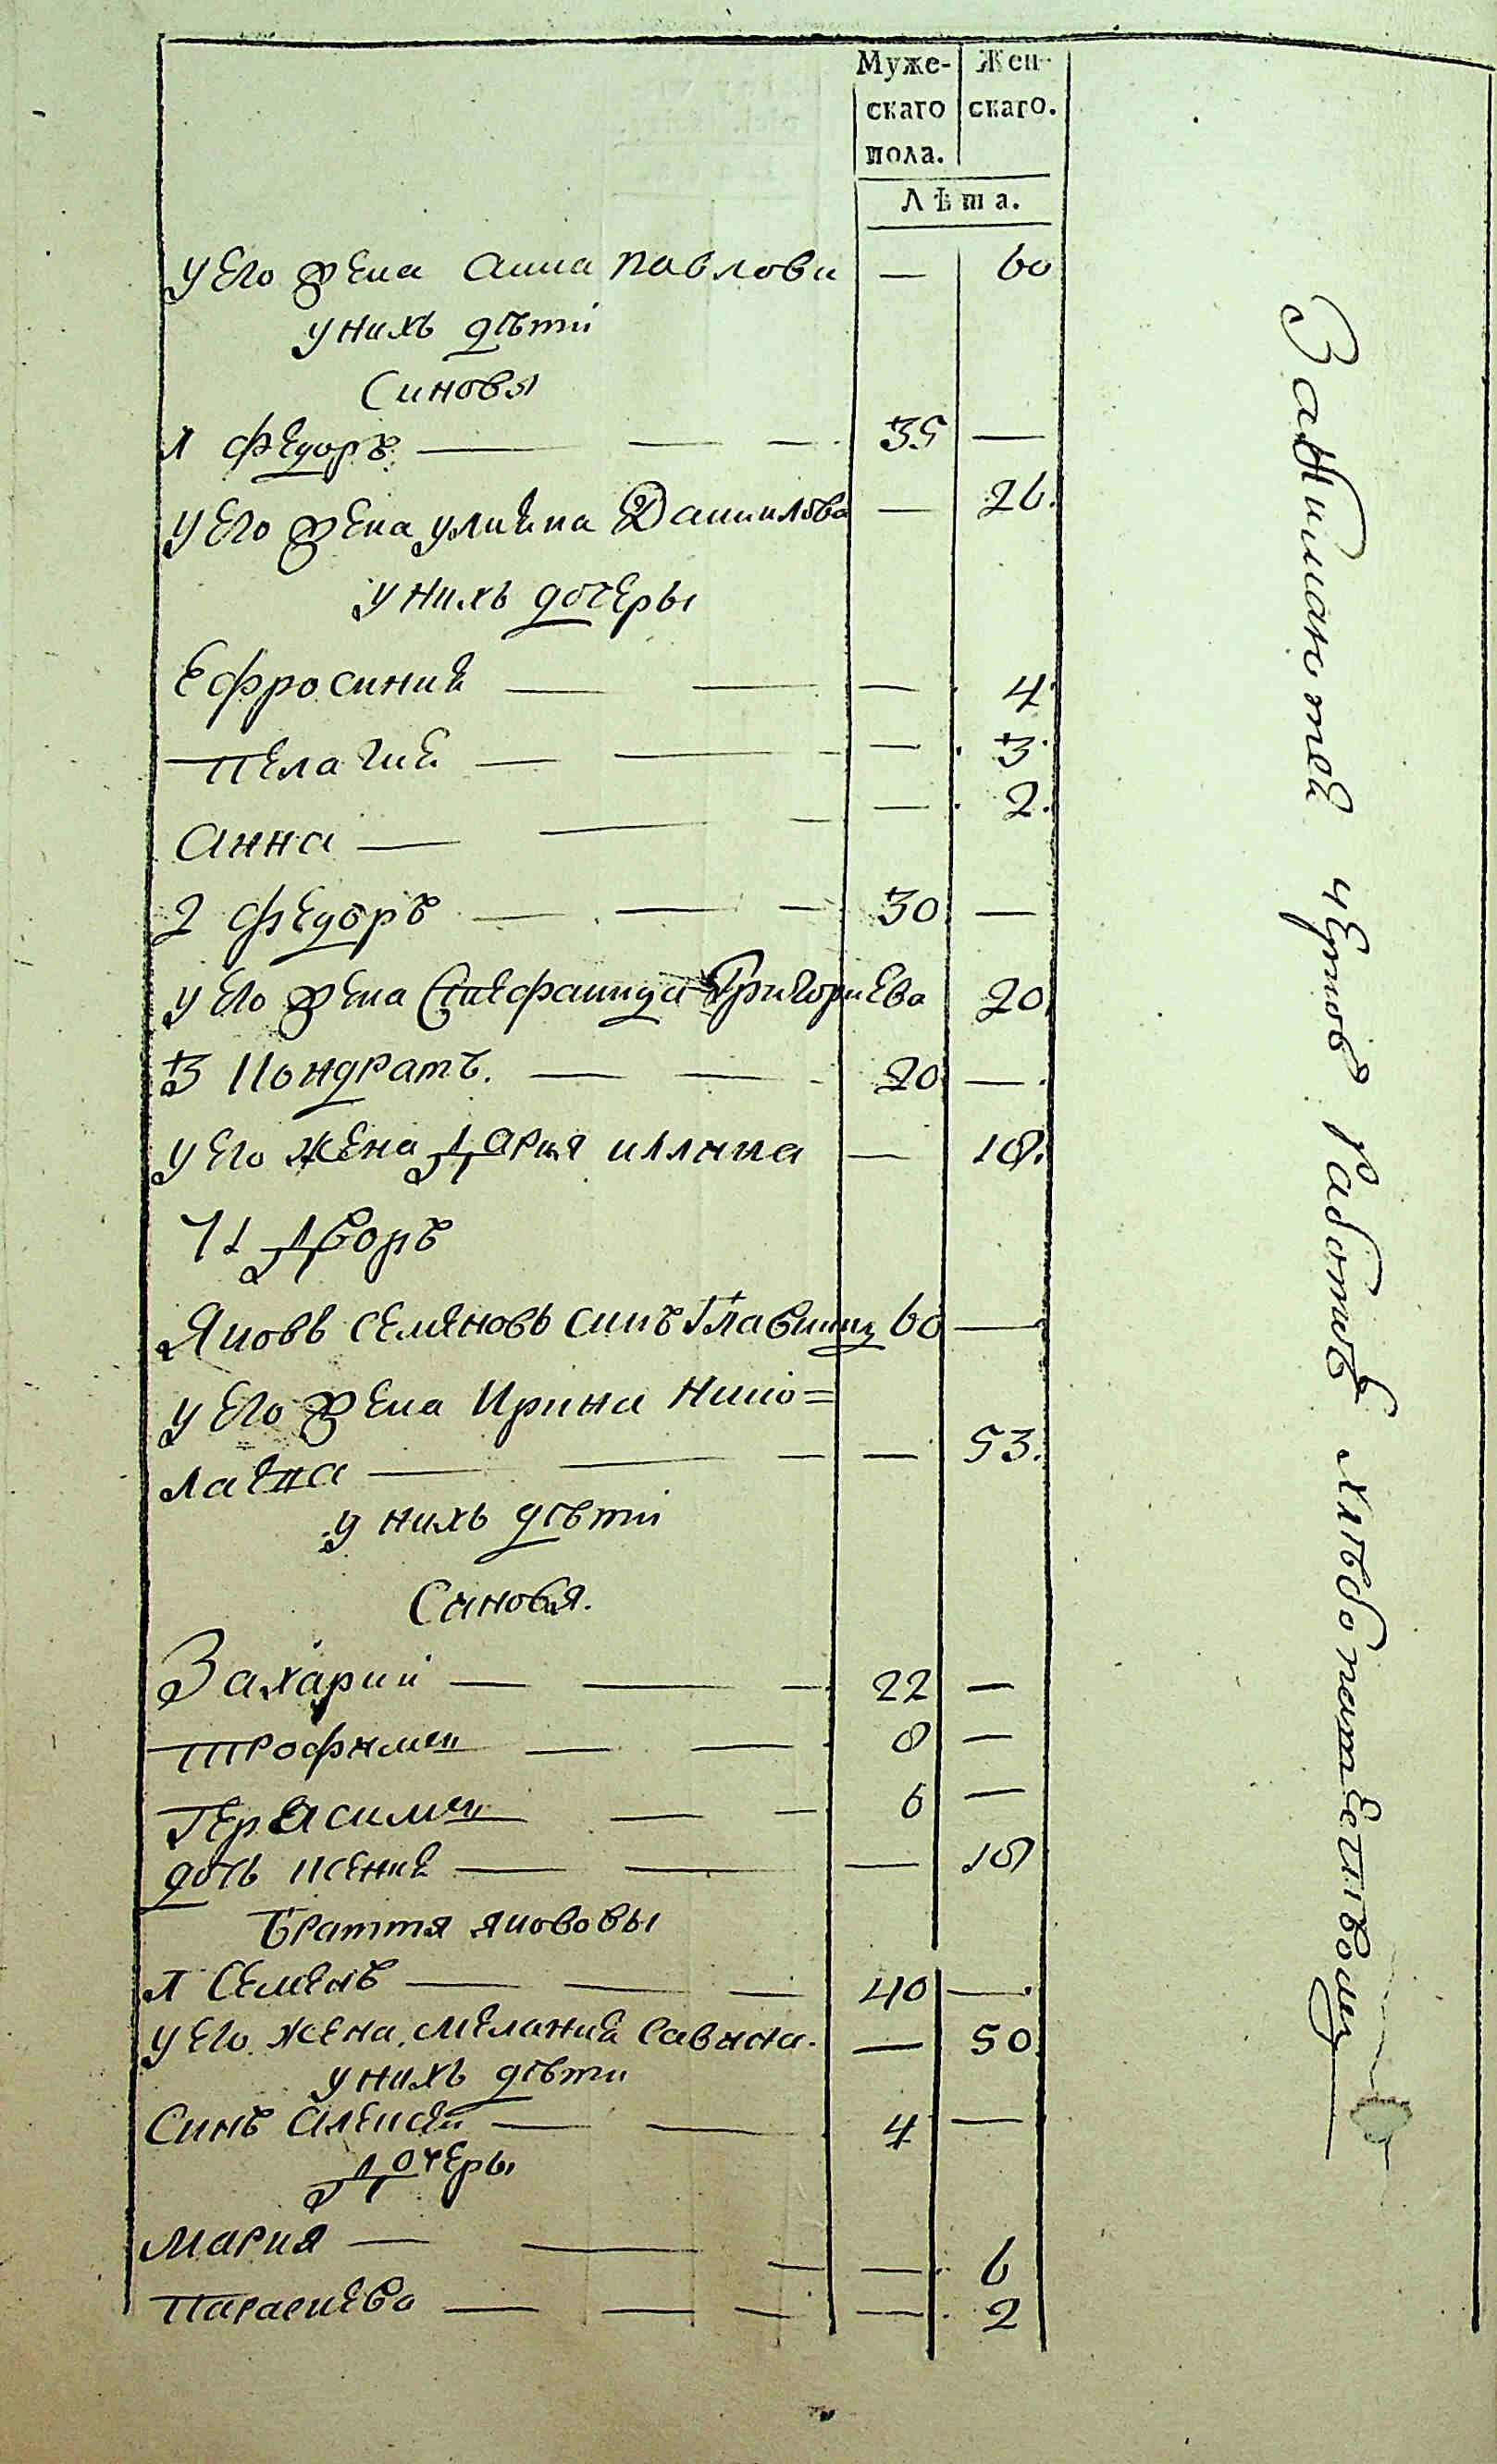 Муже-
скаго
пола.
Жен-
скаго.
Лѣта.
у Его жена Анна Павлова — 60
у нихъ дѣти
Синовя
1 Федоръ — — — 35 —
у Его жена Улиана Данилова — 26.
у нихъ дочеры
Ефросиния — — — 4
Пелагия — — — 3
Анна — — — 2.
2 Федоръ — — — 30 —
у Его жена Григориева 20
3 Кондратъ. — — — 20 —
у Его жена Дария илліна — 18.
Дворъ
Яковъ Семяновъ синъ 60 —
у Его жена Ирина Нико=
лаевна — — — — 53.
у нихъ дѣти
Синовя.
Захарий — — — 22 —
Трофимъ — — 8 —
Герасимъ — — 6 —
дочь Ксения — — — 18
Браття Якововы
1 Семенъ — — — 40 —
у Его жена Мелания Савина. — 50
у нихъ дѣти
Синъ Алексей — — 4 —
Дочеры
Мария — — — — 6
Параскева — — — — 2
Занимаются работою хлѣбопашествомъ